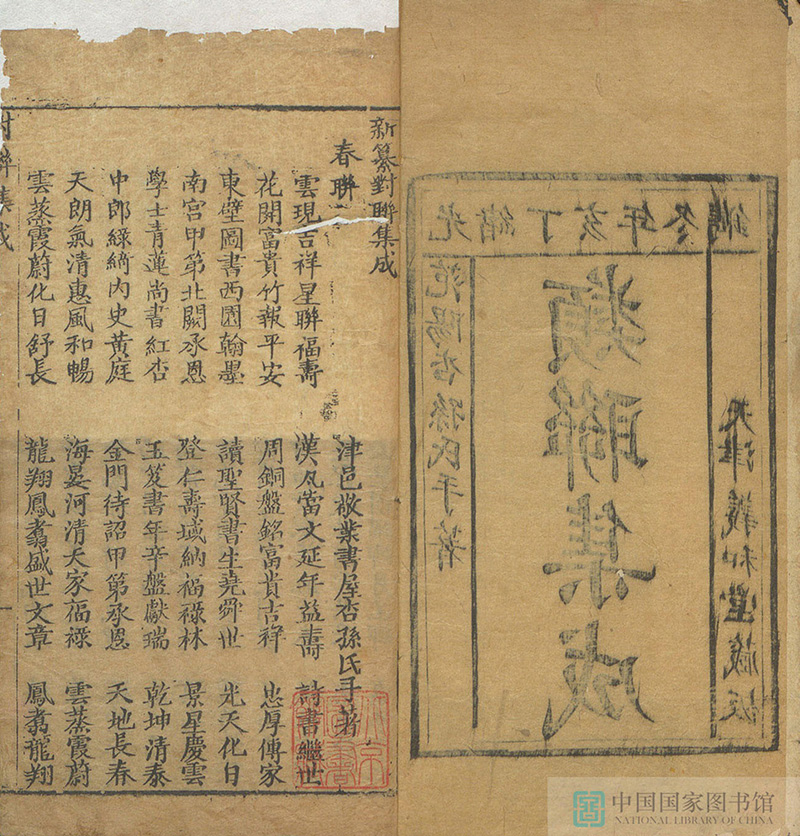 光緒丁亥年冬鐫
范陽杏孫氏手著
類聯集成
天津義和堂藏板
新纂對聯集成
春聯
津邑敬業書屋杏孫氏手著
雲現吉祥星聯福壽
漢瓦當文延年益壽
詩書繼世
花開富貴竹報平安
周銅盤銘富貴吉祥
忠厚傳家
東壁圖書西園翰墨
讀聖賢書生堯舜世
光天化日
南宮甲第北闕承恩
登仁壽域納福祿林
景星慶雲
學士青蓮尚書紅杏
玉笈書年辛盤獻瑞
乾坤清泰
中郎綠綺內史黃庭
金門待詔甲第承恩
天地長春
天朗氣清惠風和暢
海晏河清天家福祿
雲蒸霞蔚
雲蒸霞蔚化日舒長
龍翔鳳翥盛世文章
鳳翥龍翔
對聯集成
中国国家图书馆
NATIONAL LIBRARY OF CHINA